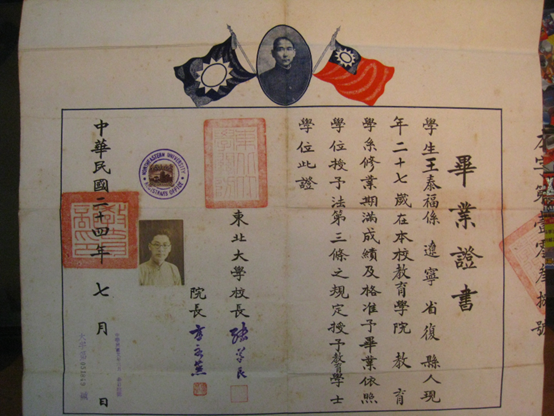 畢業證書
學生王泰福係遼寧省復縣人現
年二十七歲在本校教育學院教育
學系修業期滿成績及格准予畢業依照
學位授予法第三條之規定授予教育學士
學位此證
東北大學校長 張學良
院長 方永蒸
NORTHEASTERN UNIVERSITY
中華民國二十四年七月 日